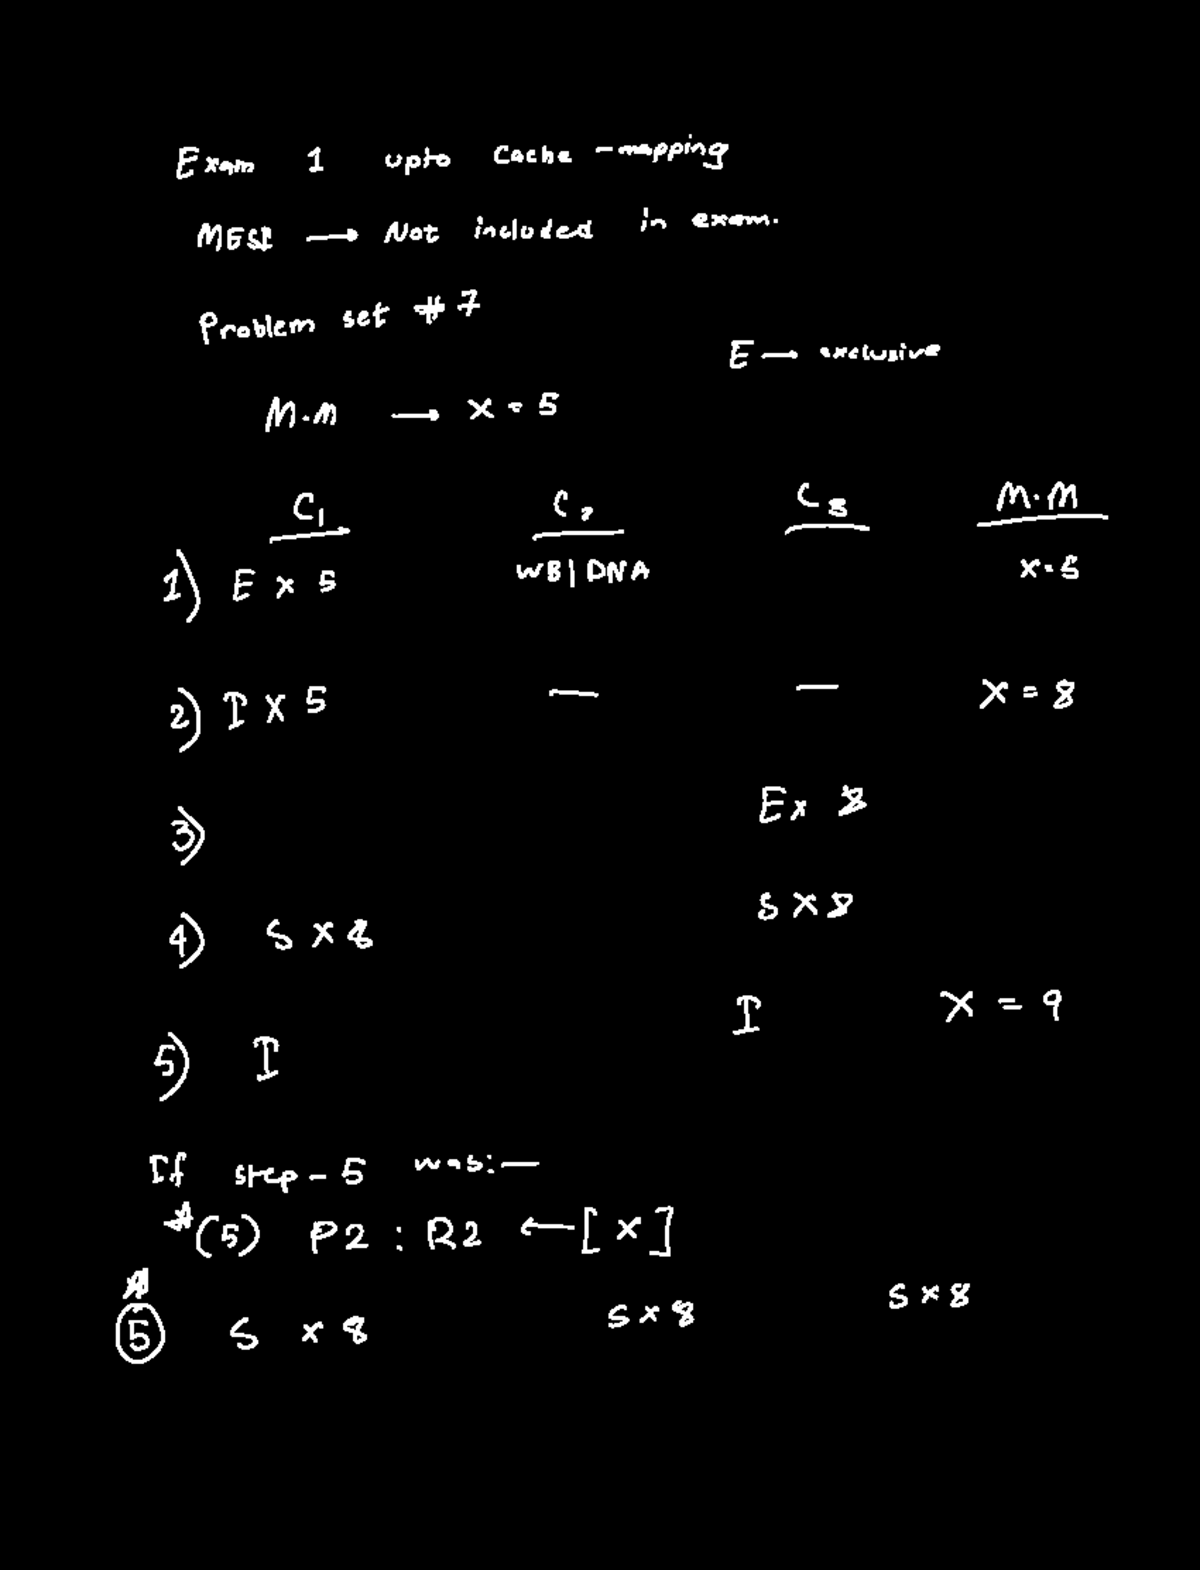 Exam 1 upto Cache -mapping
MESI → Not included in exam.
Problem set # 7
E → exclusive
M.M → X = 5
C1 C2 C3 M.M
1) E x 5 WB| DNA X = 5
2) I X 5 — — X = 8
3) Ex 8
4) S X 8 S X 8
5) I I X = 9
If step - 5 was: —
*(5) P2 : R2 ← [ x ]
5 S x 8 S x 8 S x 8